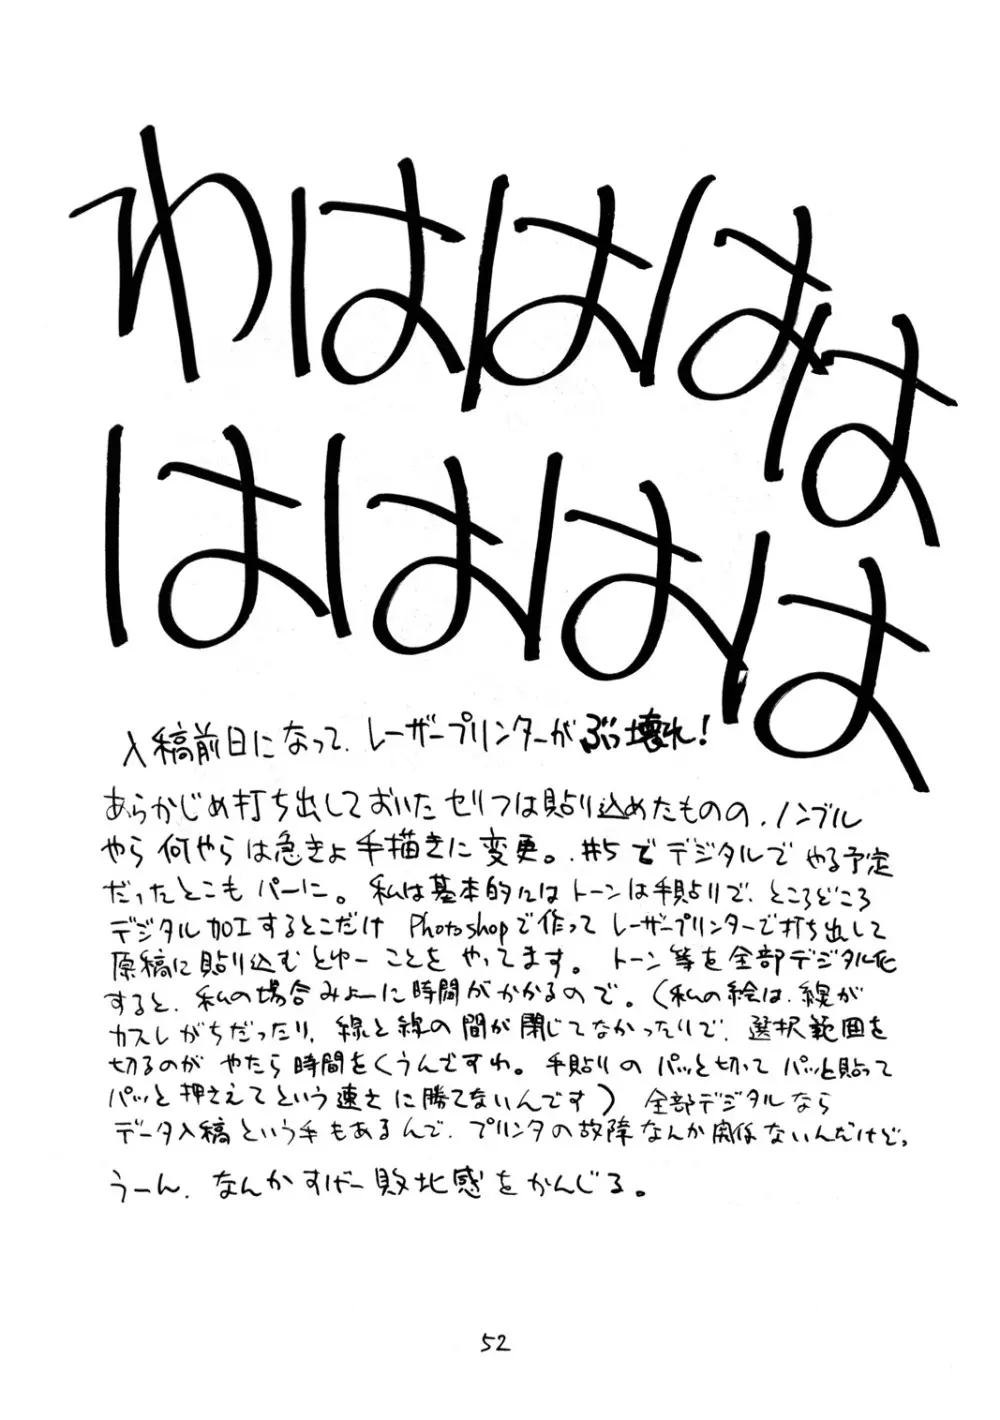 わはははは
はははは
入稿前日になって、レーザープリンターがぶっ壊れ!
あらかじめ打ち出しておいたセリフは貼り込めたものの、ノンブル
やら何やらは急きょ手描きに変更。#5でデジタルでやる予定
だったとこもパーに。私は基本的にはトーンは手貼りで、ところどころ
デジタル加工するとこだけPhotoshopで作ってレーザープリンターで打ち出して
原稿に貼り込むとゆーことをやってます。トーン等を全部デジタル化
すると、私の場合みょーに時間がかかるので。(私の絵は、線が
カスレがちだったり、線と線の間が閉じてなかったりで、選択範囲を
切るのがやたら時間をくうんですわ。手貼りのパッと切ってパッと貼って
パッと押さえてという速さに勝てないんです)全部デジタルなら
データ入稿という手もあるんで、プリンタの故障なんか関係ないんだけど。
うーん、なんかすげー敗北感をかんじる。
52